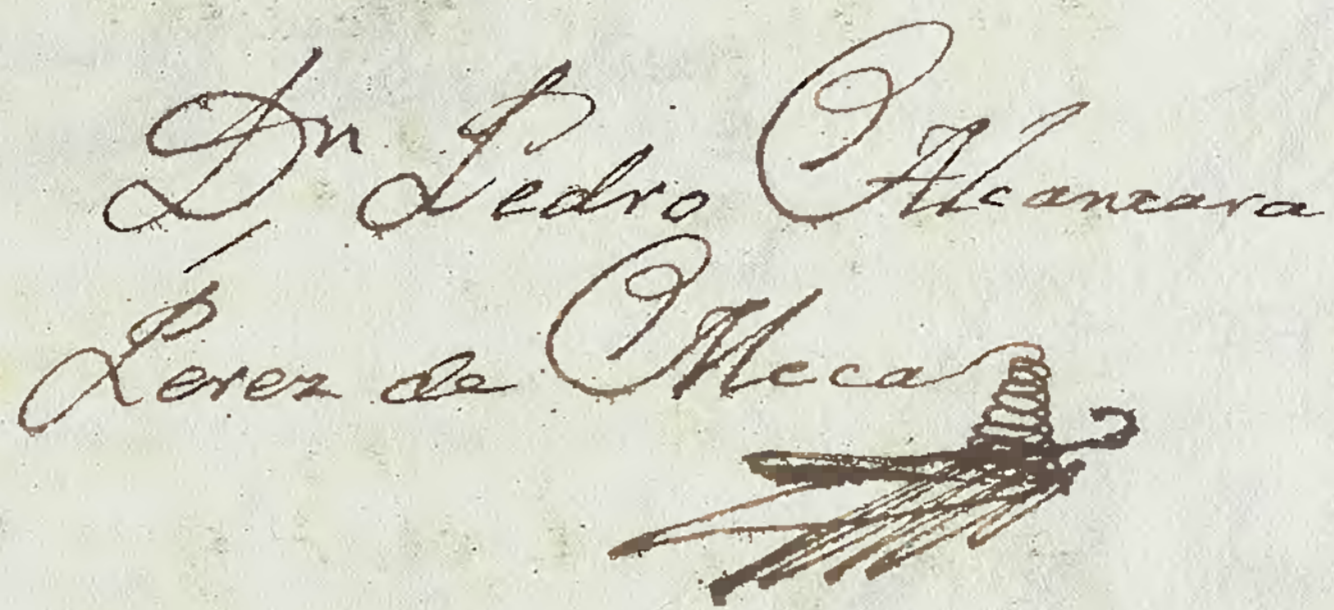 Dn Pedro Alcantara
Perez de Meca